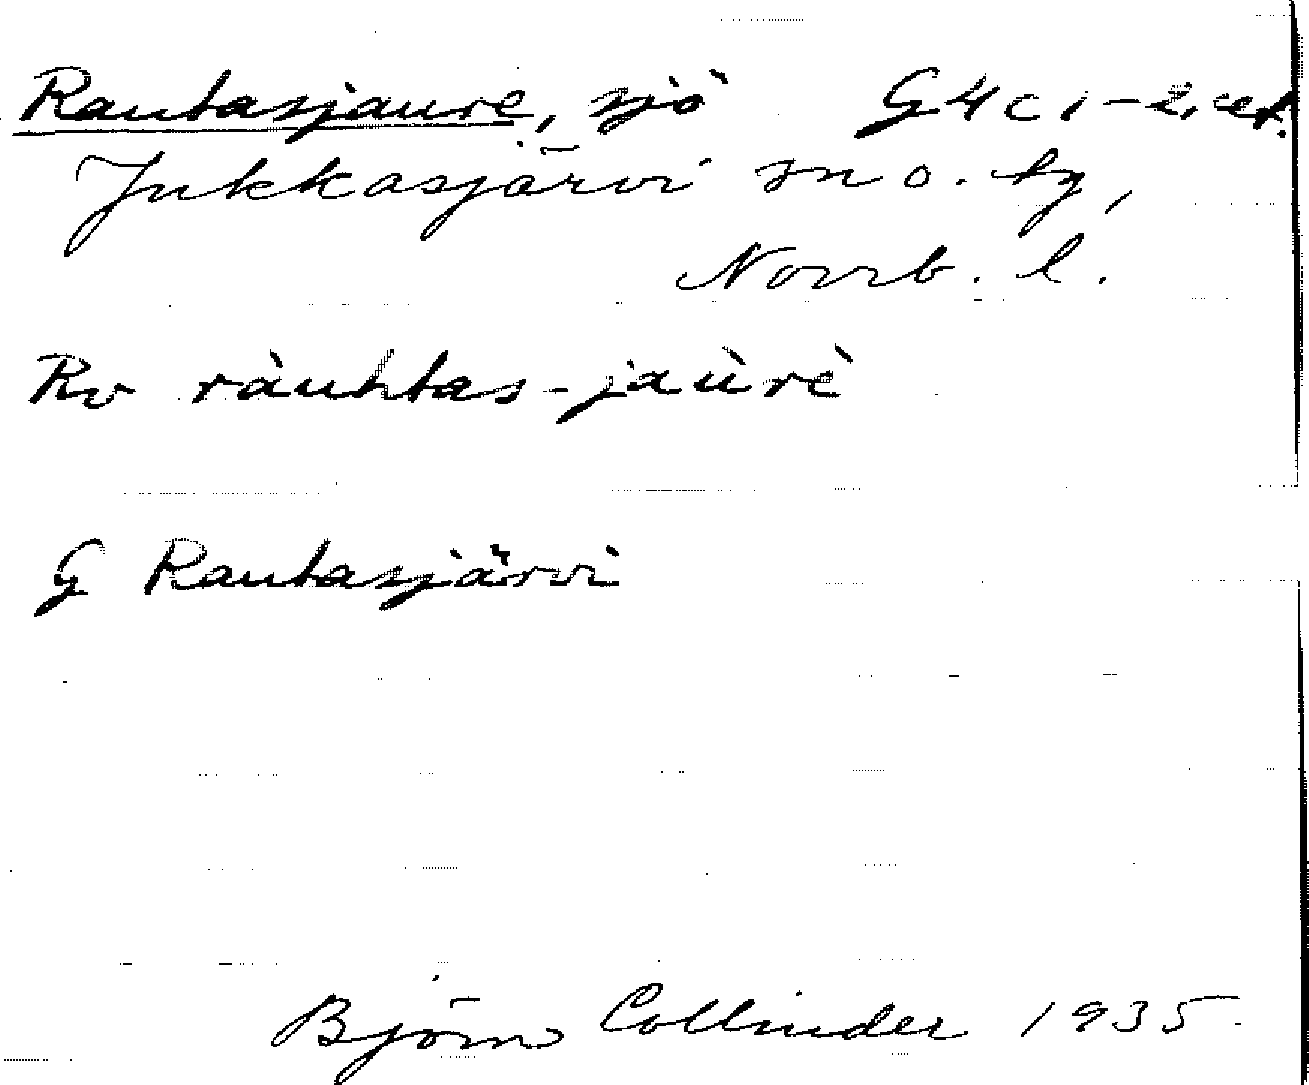 Rautasjaure, sjö G4c1-2,
Jukkasjärvi sn o. tg,
Norrb. l.
Rv ràuhtas-jaùrè
G Rautasjärvi
Björn Collinder 1935.